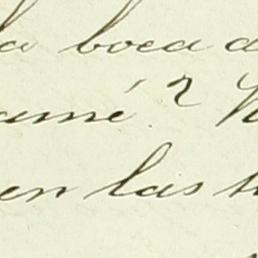 la boca d
amé? N
en las t